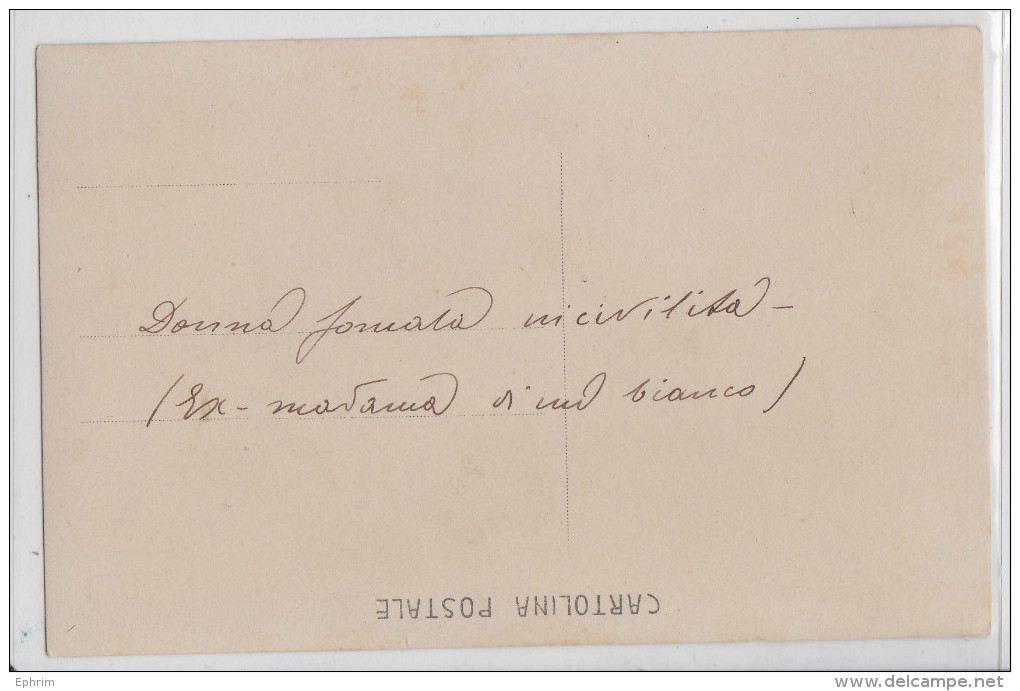 Donna somala incivilita -
(Ex- madama di un bianco)
CARTOLINA POSTALE
Ephrim
delcampe.net